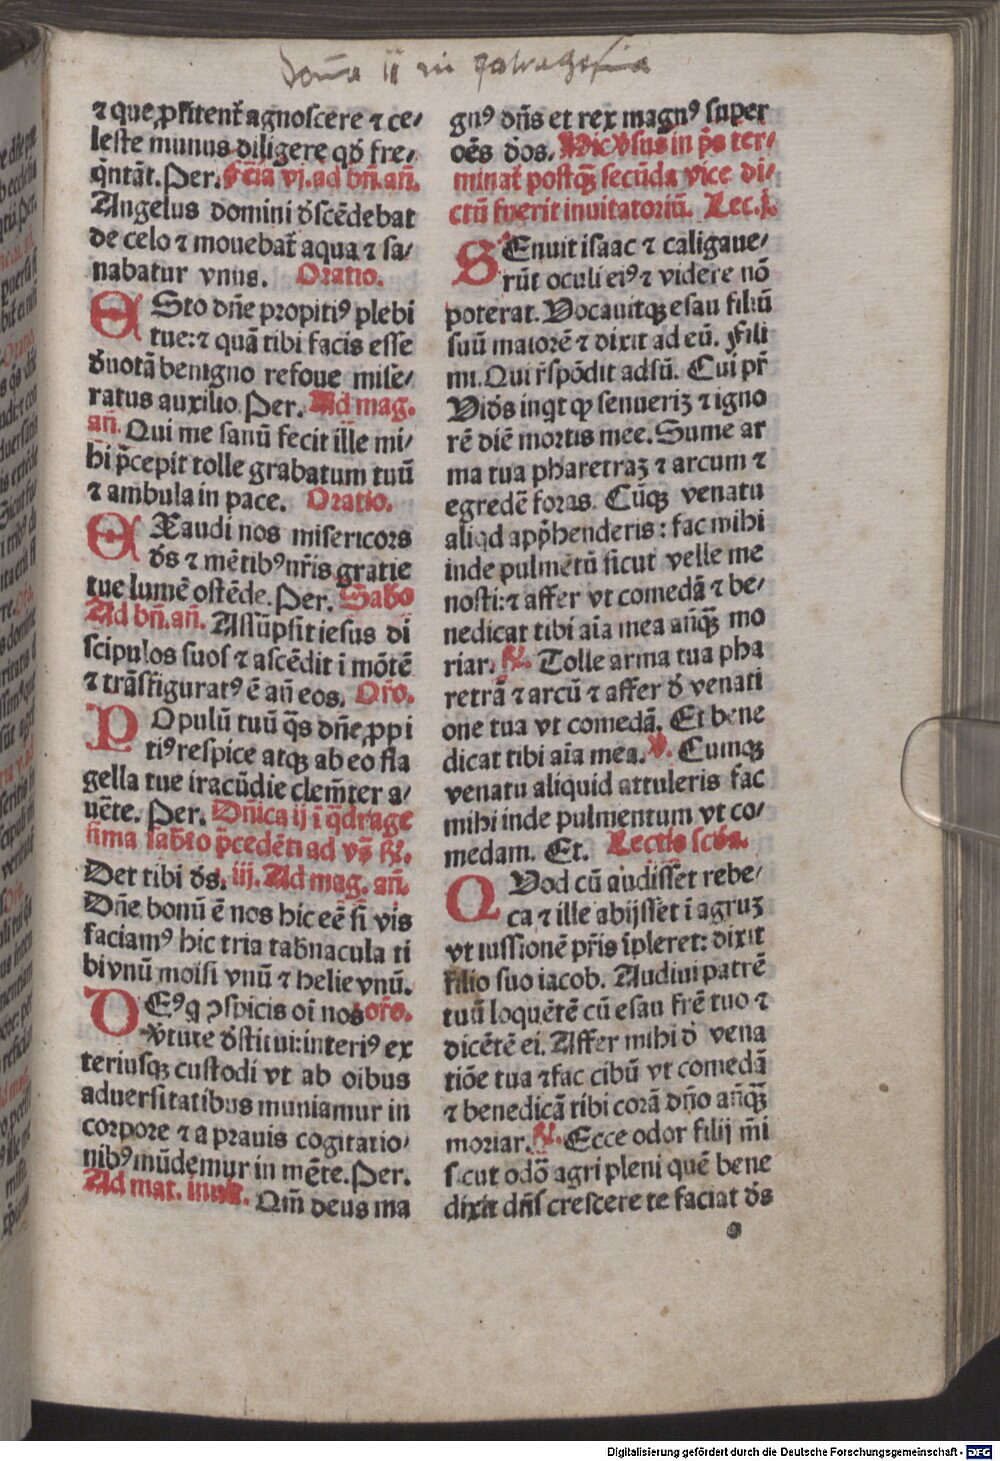 Domīca ii in
⁊ que ꝓfitent̄ agnoscere ⁊ ce⸗
leste munus diligere qđ fre⸗
q̄ntāt. Per. Fēia vj. ad bn̄. an̄.
Angelus domini ꝺscēdebat
de celo ⁊ mouebat̄ aqua ⁊ sa⸗
nabatur vnus. Oratio.
ESto dn̄e propitiꝰ plebi
tue: ⁊ quā tibi facis esse
ꝺuotā benigno refoue mise⸗
ratus auxilio. Per. Ad mag.
an̄. Qui me sanū fecit ille mi⸗
hi p̄cepit tolle grabatum tuū
⁊ ambula in pace. Oratio.
EXaudi nos misericors
ds̄ ⁊ mētibꝰ nr̄is gratie
tue lumē ostēde. Per. Sabb̄o
Ad bn̄. an̄. Assūpsit iesus di
scipulos suos ⁊ ascēdit ī mōtē
⁊ trāsfiguratꝰ ē an̄ eos. Or̄o.
POpulū tuū q̄s dn̄e ꝓpi
tiꝰ respice atqꝫ ab eo fla
gella tue iracūdie clem̄ter a⸗
uēte. Per. Dn̄ica ij ī q̄drage
sima sabb̄to p̄cedēti ad vs̄℟.
Det tibi ds̄. iij. Ad mag. an̄.
Dn̄e bonū ē nos hic eē si vis
faciamꝰ hic tria tab̄nacula ti
bi vnū moisi vnū ⁊ helie vnū.
DEꝰ q̄ ꝯspicis oī nos or̄o.
v̄tute ꝺstitui: interiꝰ ex
teriusqꝫ custodi vt ab oībus
aduersitatibus muniamur in
corpore ⁊ a prauis cogitatio⸗
nibꝰ mūdemur in mēte. Per.
Ad mat. inuit. Qm̄ deus ma
gnꝰ dn̄s et rex magnꝰ super
oēs ꝺos. Hic v̄sus in ps̄ ter⸗
minat̄ postqꝫ secūda vice di⸗
ctū fuerit inuitatoriū. Lec. j.
SEnuit isaac ⁊ caligaue⸗
rūt oculi eiꝰ ⁊ videre nō
poterat. Vocauitqꝫ esau filiū
suū maiorē ⁊ dixit ad eū. Fili
mi. Qui r̄spōdit adsū. Cui pr̄
Vides inqt ꝙ senueriꝫ ⁊ igno
rē diē mortis mee. Sume ar
ma tua pharetraꝫ ⁊ arcum ⁊
egredē foras. Cūqꝫ venatu
aliqd app̄henderis: fac mihi
inde pulmētū sicut velle me
nosti: ⁊ affer vt comedā ⁊ be⸗
nedicat tibi aīa mea an̄qꝫ mo
riar. ℟. Tolle arma tua pha
retrā ⁊ arcū ⁊ affer ꝺ venati
one tua vt comedā. Et bene
dicat tibi aīa mea. ℣. Cumqꝫ
venatu aliquid attuleris fac
mihi inde pulmentum vt co⸗
medam. Et. Lectio scd̄a.
QVod cū audisset rebe⸗
ca ⁊ ille abijsset ī agruꝫ
vt iussionē pr̄is īpleret: dixit
filio suo iacob. Audiui patrē
tuū loquētē cū esau fr̄e tuo ⁊
dicētē ei. Affer mihi ꝺ vena
tiōe tua ⁊ fac cibū vt comedā
⁊ benedicā tibi corā dn̄o an̄qꝫ
moriar. ℟. Ecce odor filij mi
sicut odō agri pleni quē bene
dixit dn̄s crescere te faciat ds̄
Digitalisierung gefördert durch die Deutsche Forschungsgemeinschaft - DFG